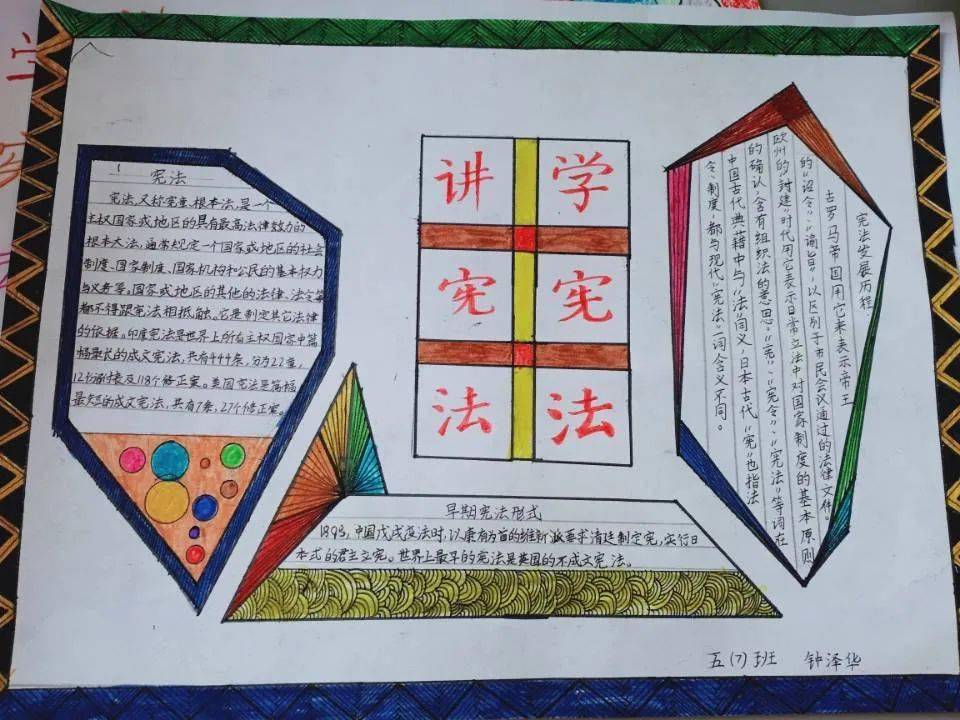 学宪法
讲宪法
宪法
宪法，又称宪章、根本法，是一个
主权国家或地区的具有最高法律效力的
根本大法，通常规定一个国家或地区的社会
制度、国家制度、国家机构和公民的基本权力
与义务等。国家或地区的其他的法律、法令等
都不得跟宪法相抵触。它是制定其它法律
的依据。印度宪法是世界上所有主权国家中篇
幅最长的成文宪法，共有444条，分为22章，
12份附表及118个修正案。美国宪法是篇幅
最短的成文宪法，共有7条，27个修正案。
早期宪法形式
1898，中国戊戌变法时，以康有为首的维新派要求清廷制定宪，实行日
本式的君主立宪。世界上最早的宪法是英国的不成文宪法。
宪法发展历程
古罗马帝国用它来表示帝王
的“诏令”、“谕旨”，以区别于市民会议通过的法律文件。
欧州的“封建”时代用它表示日常立法中对国家制度的基本原则
的确认，含有组织法的意思。“宪”、“宪令”、“宪法”等词在
中国古代典藉中与“法”同义，日本古代“宪”也指法
令、制度，都与现代“宪法”一词含义不同。
五（7）班 钟泽华